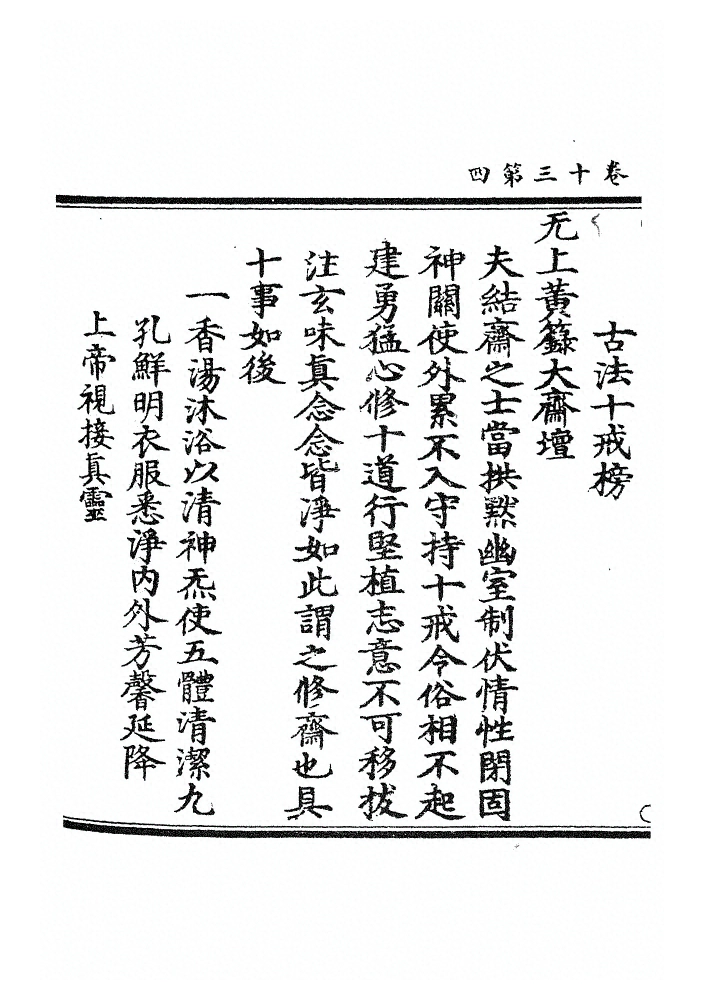 卷十三第四
古法十戒榜
无上黃籙大齋壇
夫結齋之士當拱默幽室制伏情性閉固
神關使外累不入守持十戒令俗相不起
建勇猛心修十道行堅植志意不可移拔
注玄味真念念皆淨如此謂之修齋也具
十事如後
一香湯沐浴以清神炁使五體清潔九
孔鮮明衣服悉淨內外芳馨延降
上帝視接真靈